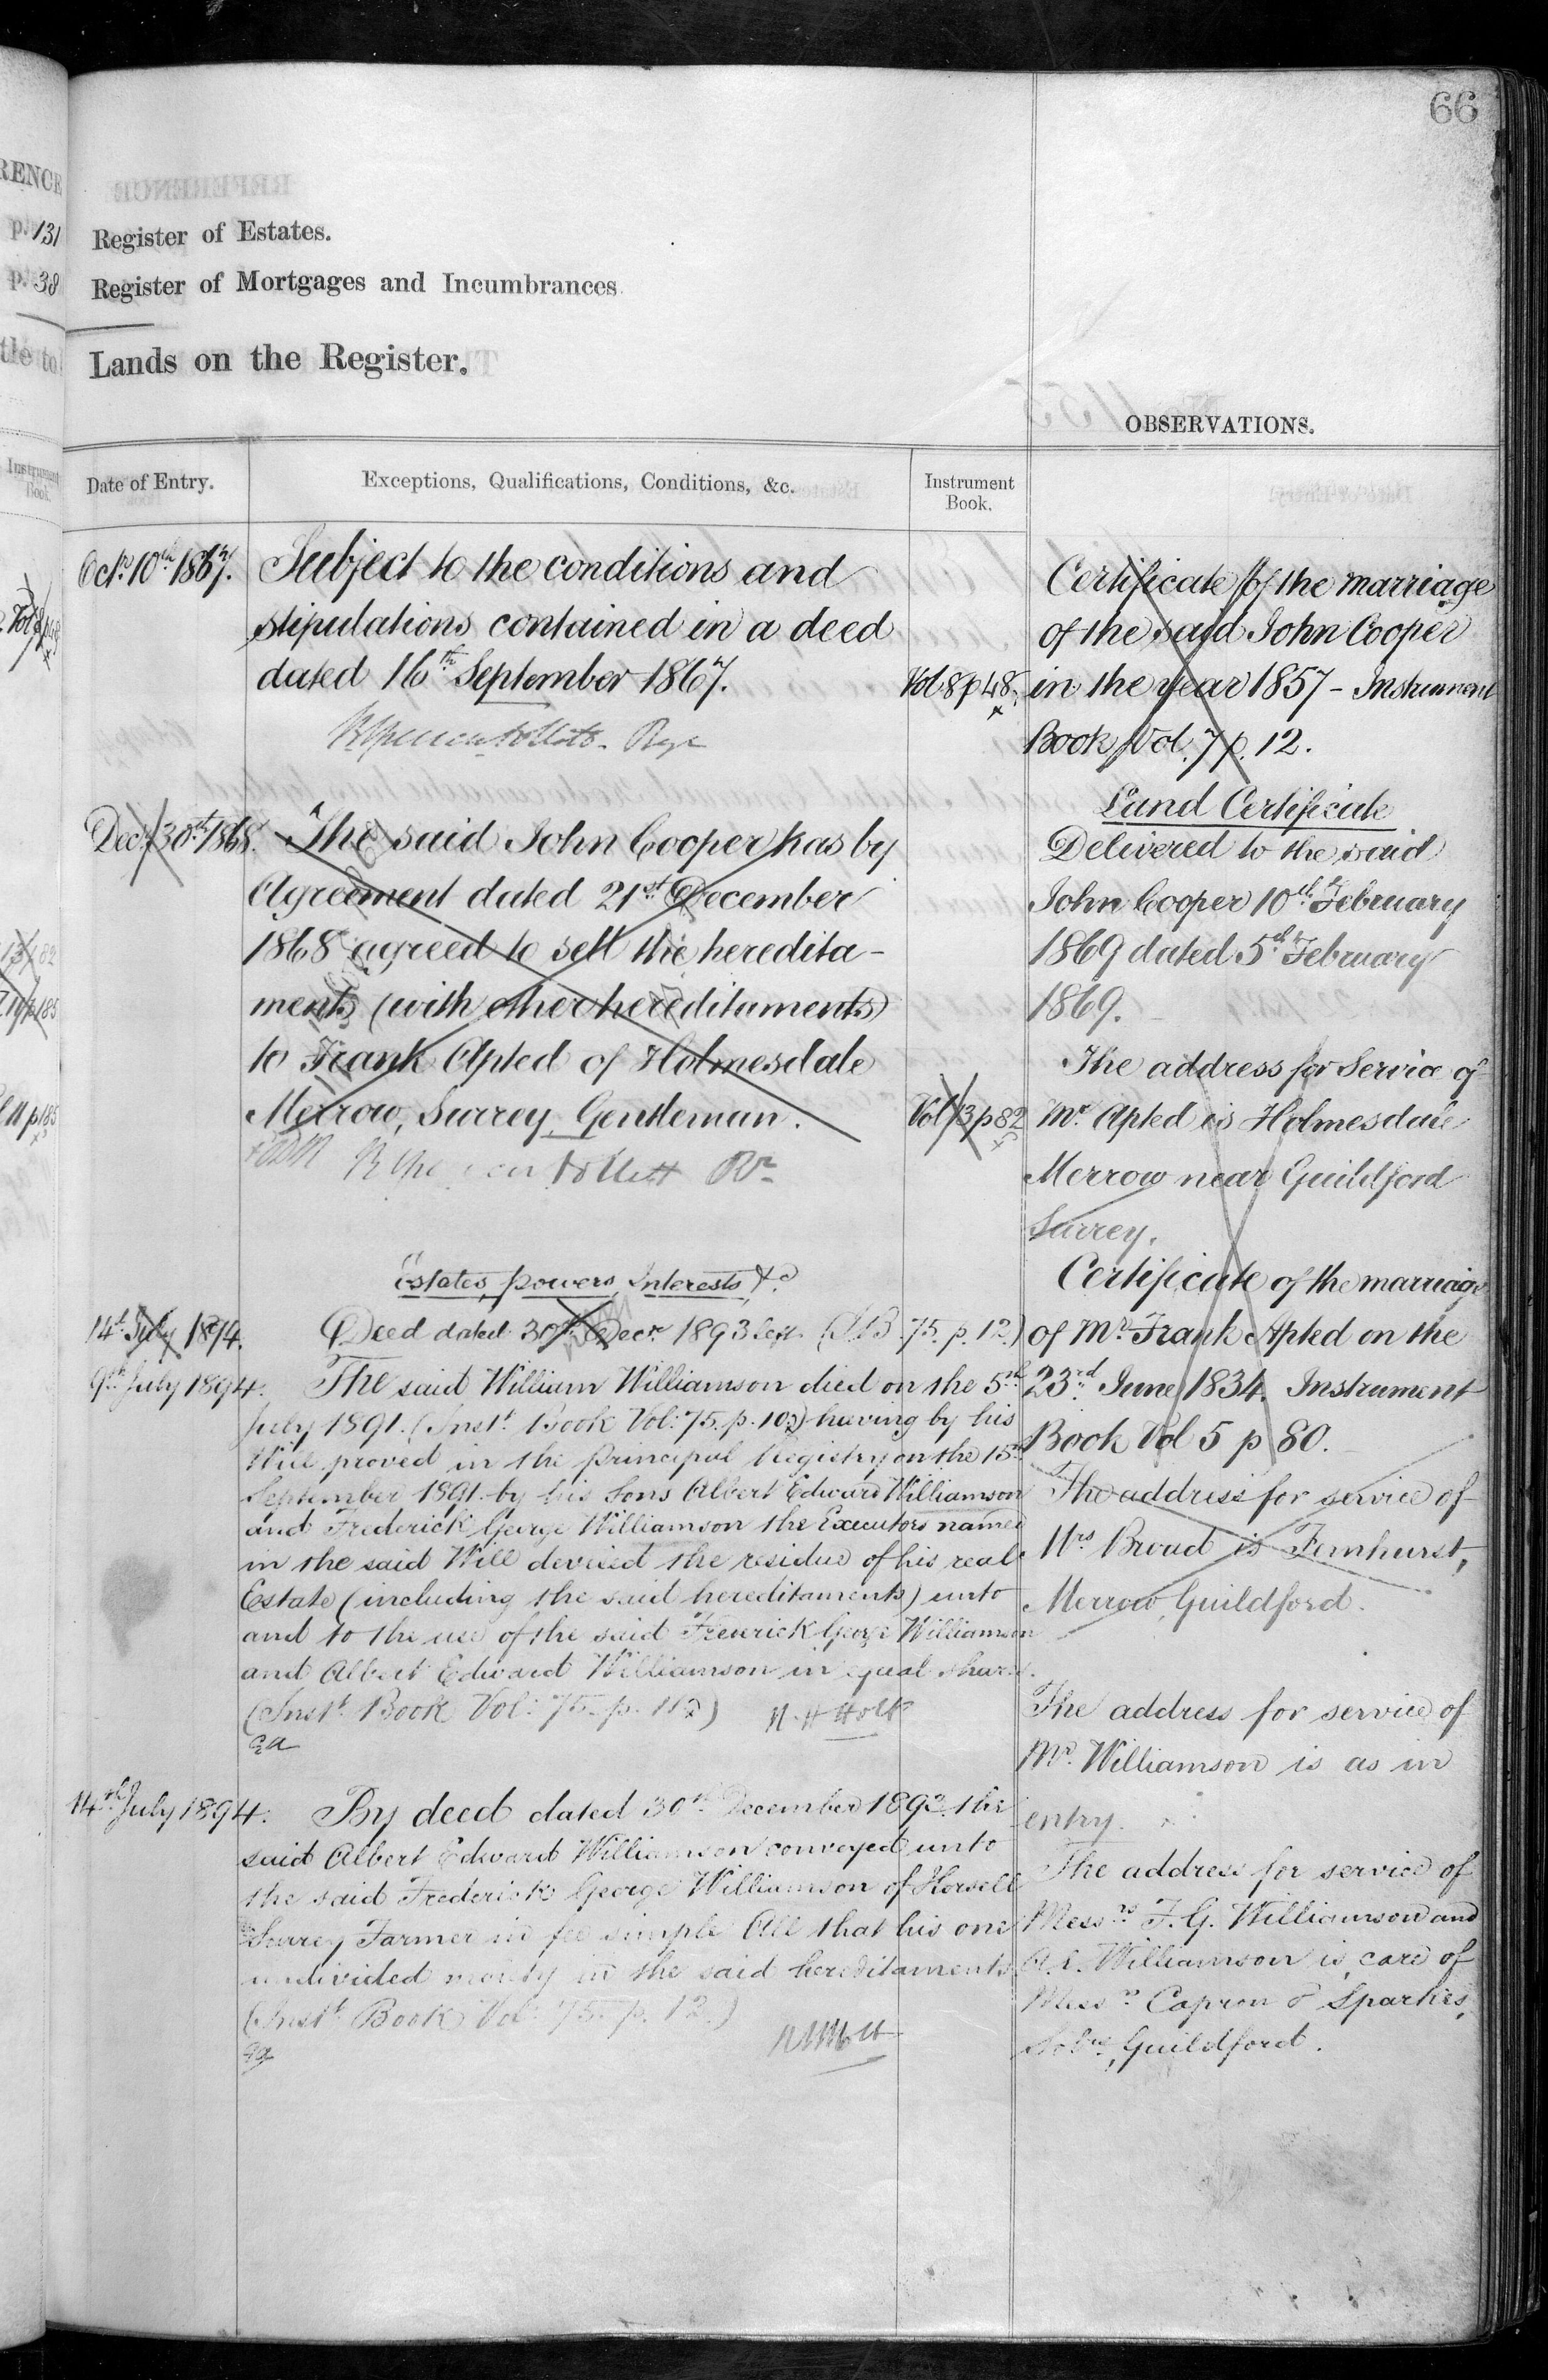 66
RENCE
p. 131
p. 38
Register of Estates.
Register of Mortgages and Incumbrances
Lands on the Register.
OBSERVATIONS.
Instrument
Book.
Date of Entry.
Exceptions, Qualifications, Conditions, &c.
Instrument
Book.
Octr. 10th 1867.
Subject to the conditions and
stipulations contained in a deed
dated 16th September 1867.
Vol 8 p 48.
Regr
Decr 30th 1868.
The said John Cooper has by
Agreement dated 21st December
1868 agreed to sell the heredita-
ments (with other hereditaments)
to Frank Apted of Holmesdale
Merrow, Surrey, Gentleman.
Vol 13 p 82
Estates, powers, Interests, &c
14th July 1894.
Deed dated 30th Decr. 1893 left (I.B. 75. p. 12.)
9th July 1894.
The said William Williamson died on the 5th
July 1891. (Inst. Book Vol: 75. p. 10) having by his
Will proved in the Principal Registry on the 15th
September 1891 by his Sons Albert Edward Williamson
and Frederick George Williamson the Executors named
in the said Will devised the residue of his real
Estate (including the said hereditaments) unto
and to the use of the said Frederick George Williamson
and Albert Edward Williamson in equal shares.
(Inst. Book Vol: 75. p. 11)
14th July 1894.
By deed dated 30th December 1893 the
said Albert Edward Williamson conveyed unto
the said Frederick George Williamson of Horsell
Surrey Farmer in fee simple All that his one
undivided moiety in the said hereditaments
(Inst. Book Vol: 75. p. 12.)
Certificate of the marriage
of the said John Cooper
in the year 1857 - Instrument
Book Vol. 7 p. 12.
Land Certificate
Delivered to the said
John Cooper 10th February
1869 dated 5th February
1869.
The address for Service of
Mr. Apted is Holmesdale
Merrow near Guildford
Surrey.
Certificate of the marriage
of Mr. Frank Apted on the
23rd June 1834. Instrument
Book Vol 5 p 80.
The address for service of
Mrs Broad is Fernhurst,
Merrow, Guildford.
The address for service of
Mr. Williamson is as in
entry.
The address for service of
Messrs F. G. Williamson and
A. E. Williamson is care of
Messrs Capron & Sparkes,
Solrs, Guildford.